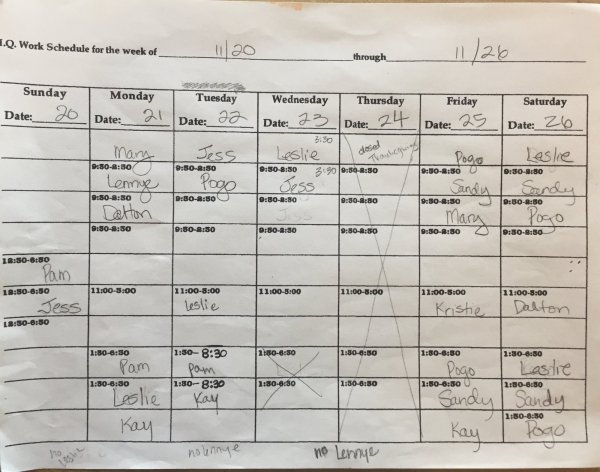 I.Q. Work Schedule for the week of 11/20 through 11/26
Sunday Monday Tuesday Wednesday Thursday Friday Saturday
Date: 20 Date: 21 Date: 22 Date: 23 Date: 24 Date: 25 Date: 26
3:30
Mary Jess Leslie closed Thanksgiving Pogo Leslie
9:30-5:30 9:30-5:30 9:30-5:30 3:30 9:30-5:30 9:30-5:30 9:30-5:30
Lennye Pogo Jess Sandy Sandy
9:30-5:30 9:30-5:30 9:30-5:30 9:30-5:30 9:30-5:30 9:30-5:30
Dalton Jess Mary Pogo
9:30-5:30 9:30-5:30 9:30-5:30 9:30-5:30 9:30-5:30 9:30-5:30
12:30-6:30
Pam
12:30-6:30 11:00-5:00 11:00-5:00 11:00-5:00 11:00-5:00 11:00-5:00 11:00-5:00
Jess Leslie Kristie Dalton
12:30-6:30
1:30-6:30 1:30-8:30 1:30-6:30 1:30-6:30 1:30-6:30 1:30-6:30
Pam Pam Pogo Leslie
1:30-6:30 1:30-8:30 1:30-6:30 1:30-6:30 1:30-6:30 1:30-6:30
Leslie Kay Sandy Sandy
1:30-6:30
Kay Kay Pogo
no no Lennye no Lennye